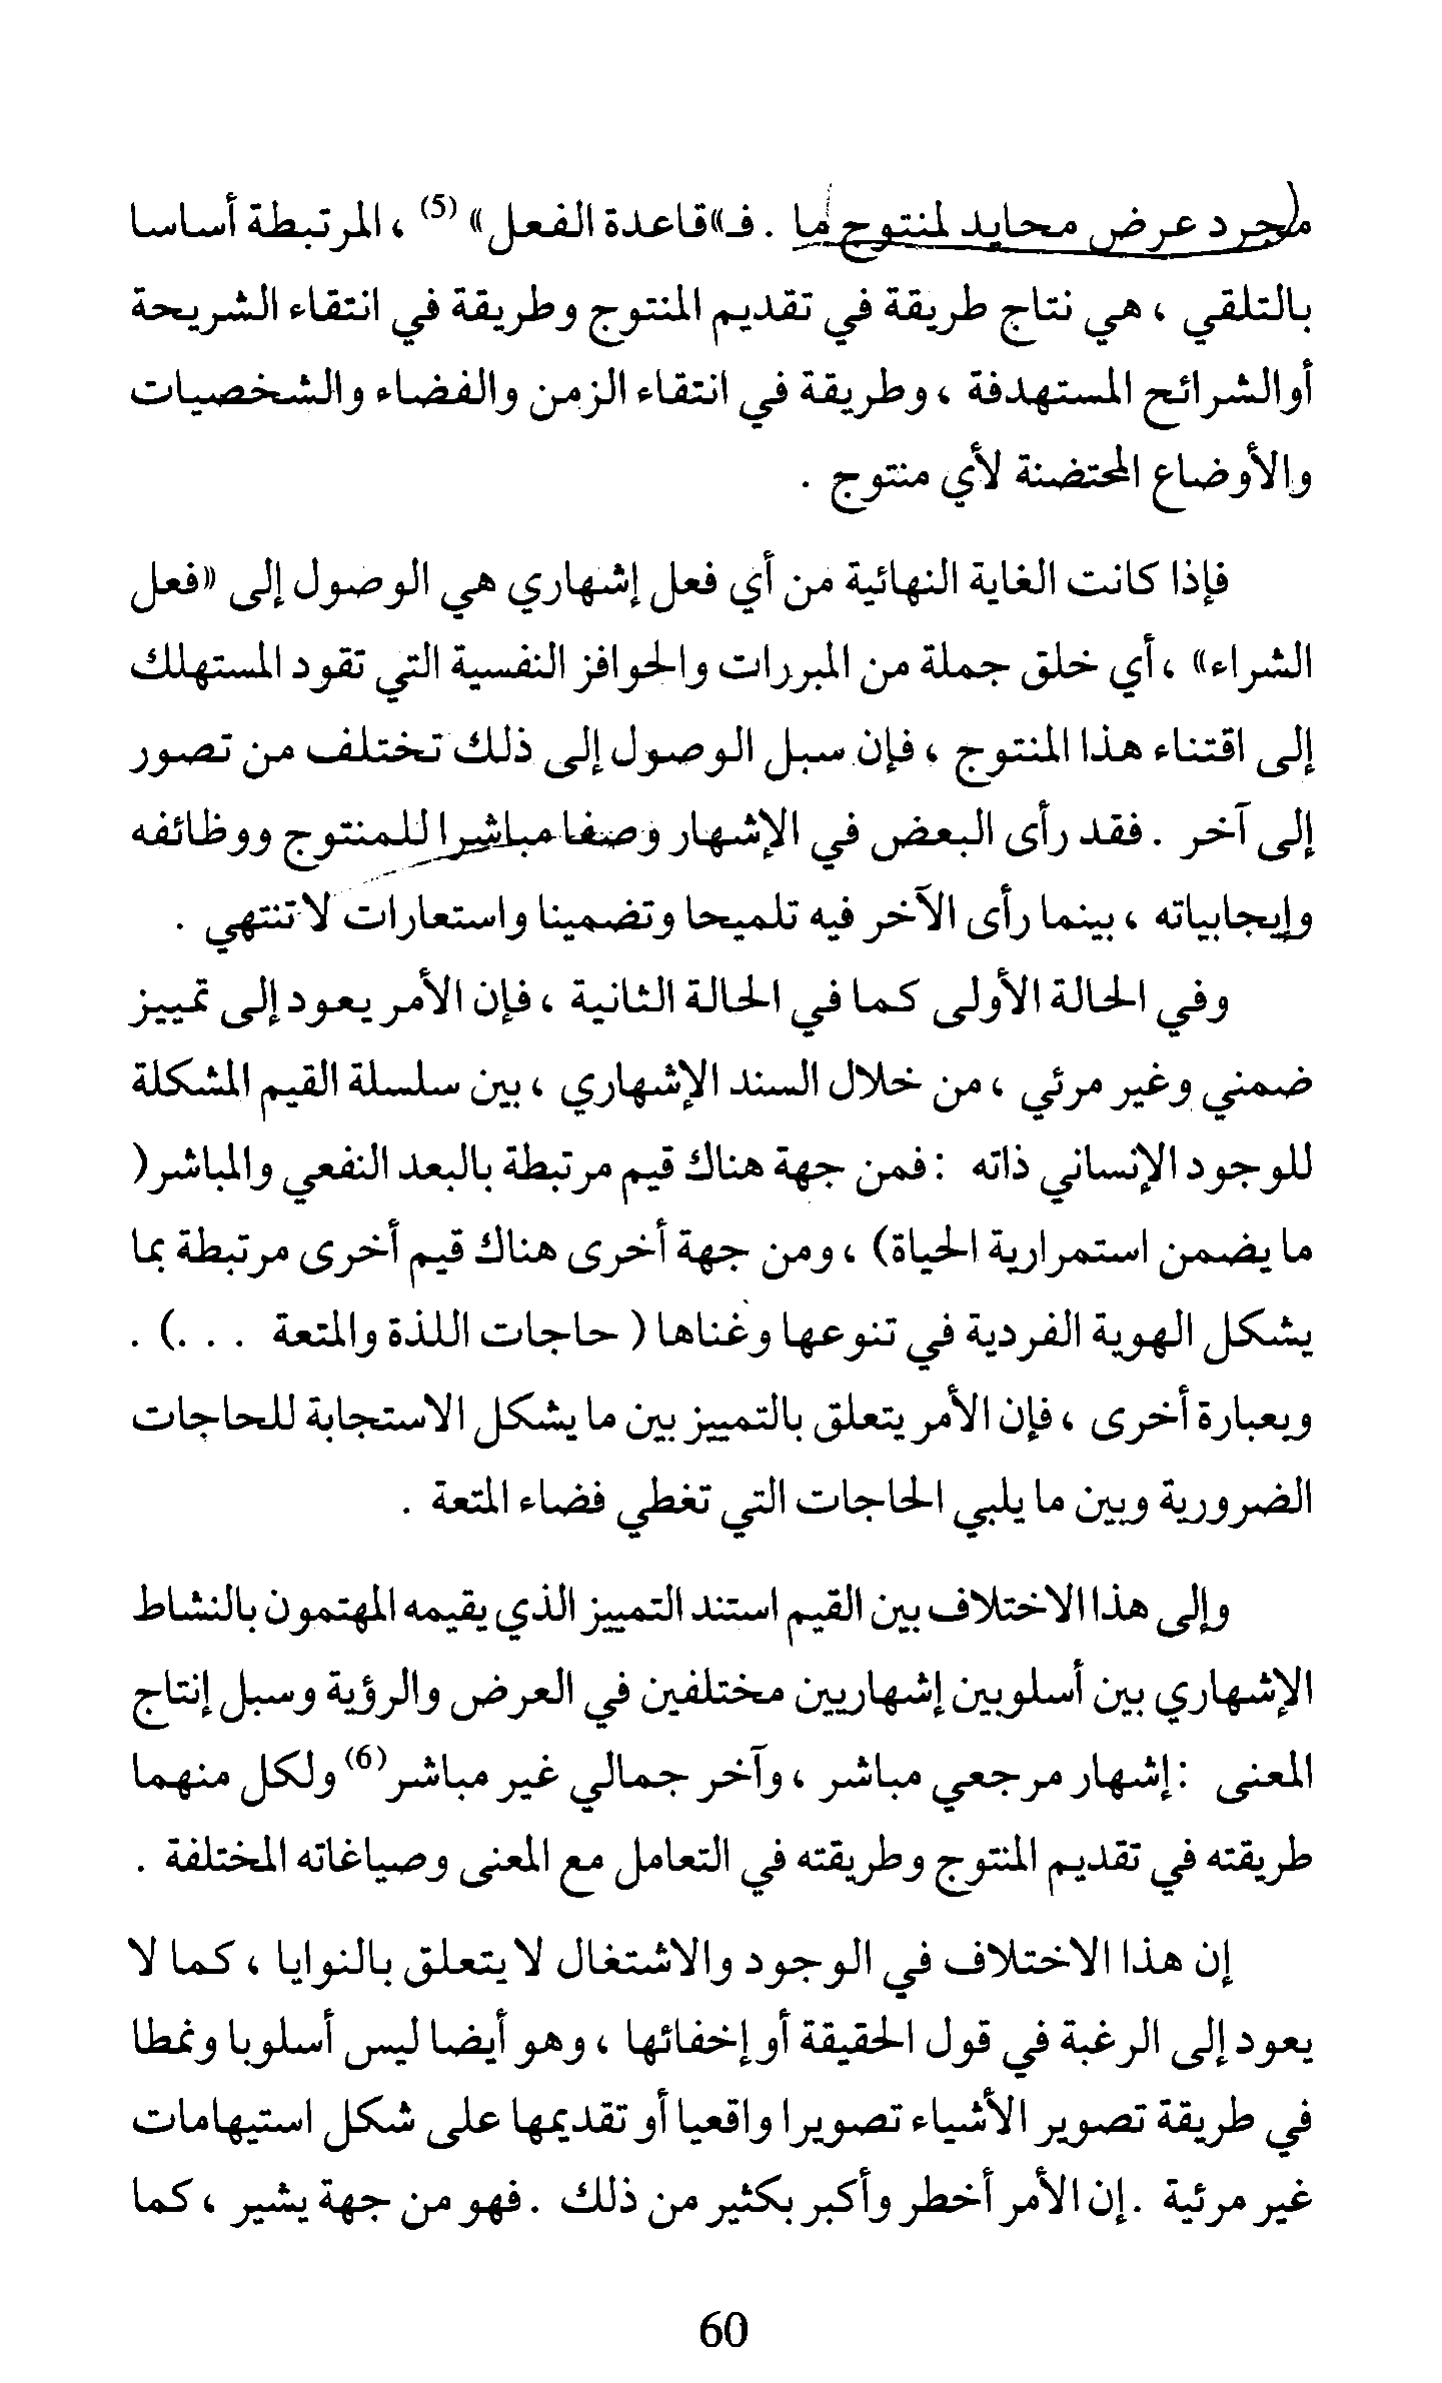 مجرد عرض محايد لمنتوج ما . فـ«قاعدة الفعل» (5) ، المرتبطة أساسا
بالتلقي ، هي نتاج طريقة في تقديم المنتوج وطريقة في انتقاء الشريحة
أوالشرائح المستهدفة ، وطريقة في انتقاء الزمن والفضاء والشخصيات
والأوضاع المحتضنة لأي منتوج .
فإذا كانت الغاية النهائية من أي فعل إشهاري هي الوصول إلى «فعل
الشراء» ، أي خلق جملة من المبررات والحوافز النفسية التي تقود المستهلك
إلى اقتناء هذا المنتوج ، فإن سبل الوصول إلى ذلك تختلف من تصور
إلى آخر . فقد رأى البعض في الإشهار وصفا مباشرا للمنتوج ووظائفه
وإيجابياته ، بينما رأى الآخر فيه تلميحا وتضمينا واستعارات لا تنتهي .
وفي الحالة الأولى كما في الحالة الثانية ، فإن الأمر يعود إلى تمييز
ضمني وغير مرئي ، من خلال السند الإشهاري ، بين سلسلة القيم المشكلة
للوجود الإنساني ذاته : فمن جهة هناك قيم مرتبطة بالبعد النفعي والمباشر(
ما يضمن استمرارية الحياة) ، ومن جهة أخرى هناك قيم أخرى مرتبطة بما
يشكل الهوية الفردية في تنوعها وغناها ( حاجات اللذة والمتعة . . .) .
وبعبارة أخرى ، فإن الأمر يتعلق بالتمييز بين ما يشكل الاستجابة للحاجات
الضرورية وبين ما يلبي الحاجات التي تغطي فضاء المتعة .
وإلى هذا الاختلاف بين القيم استند التمييز الذي يقيمه المهتمون بالنشاط
الإشهاري بين أسلوبين إشهاريين مختلفين في العرض والرؤية وسبل إنتاج
المعنى : إشهار مرجعي مباشر ، وآخر جمالي غير مباشر(6) ولكل منهما
طريقته في تقديم المنتوج وطريقته في التعامل مع المعنى وصياغاته المختلفة .
إن هذا الاختلاف في الوجود والاشتغال لا يتعلق بالنوايا ، كما لا
يعود إلى الرغبة في قول الحقيقة أو إخفائها ، وهو أيضا ليس أسلوبا ونمطا
في طريقة تصوير الأشياء تصويرا واقعيا أو تقديمها على شكل استيهامات
غير مرئية . إن الأمر أخطر وأكبر بكثير من ذلك . فهو من جهة يشير ، كما
60